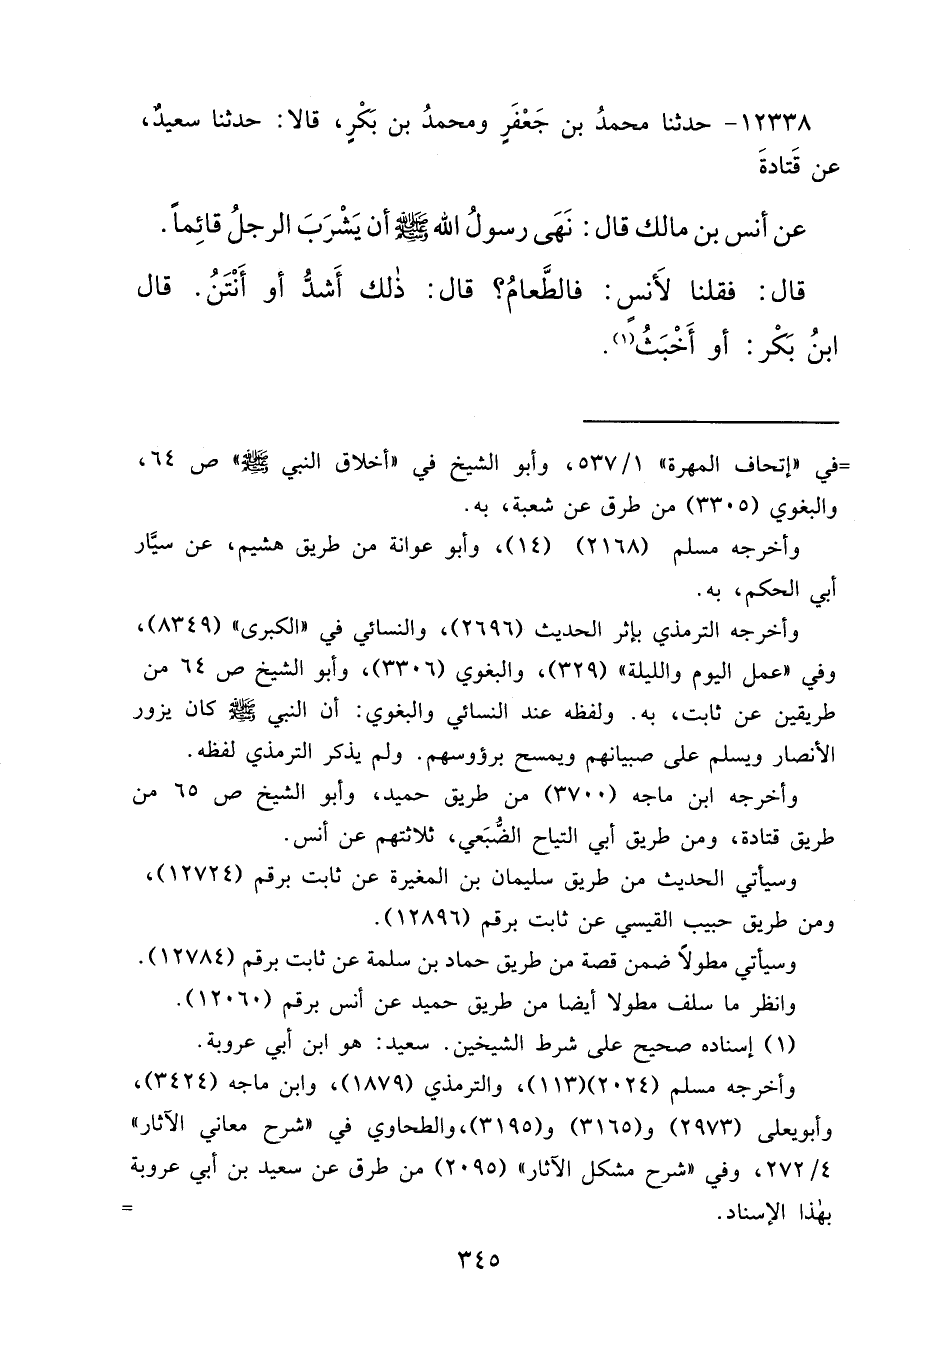 ١٢٣٣٨- حدثنا محمدُ بن جَعْفَرٍ ومحمدُ بن بَكْرٍ، قالا: حدثنا سعيدٌ،
عن قَتادةَ
عن أنس بن مالك قال: نَهَى رسولُ الله ﷺ أن يَشْرَبَ الرجلُ قائِماً.
قال: فقلنا لأَنسٍ: فالطَّعامُ؟ قال: ذٰلك أَشدُّ أو أَنْتَنُ. قال
ابنُ بَكْر: أو أَخْبَثُ(١).
=في «إتحاف المهرة» ١/ ٥٣٧، وأبو الشيخ في «أخلاق النبي ﷺ» ص ٦٤،
والبغوي (٣٣٠٥) من طرق عن شعبة، به.
وأخرجه مسلم (٢١٦٨) (١٤)، وأبو عوانة من طريق هشيم، عن سيَّار
أبي الحكم، به.
وأخرجه الترمذي بإثر الحديث (٢٦٩٦)، والنسائي في «الكبرى» (٨٣٤٩)،
وفي «عمل اليوم والليلة» (٣٢٩)، والبغوي (٣٣٠٦)، وأبو الشيخ ص ٦٤ من
طريقين عن ثابت، به. ولفظه عند النسائي والبغوي: أن النبي ﷺ كان يزور
الأنصار ويسلم على صبيانهم ويمسح برؤوسهم. ولم يذكر الترمذي لفظه.
وأخرجه ابن ماجه (٣٧٠٠) من طريق حميد، وأبو الشيخ ص ٦٥ من
طريق قتادة، ومن طريق أبي التياح الضُّبَعي، ثلاثتهم عن أنس.
وسيأتي الحديث من طريق سليمان بن المغيرة عن ثابت برقم (١٢٧٢٤)،
ومن طريق حبيب القيسي عن ثابت برقم (١٢٨٩٦).
وسيأتي مطولاً ضمن قصة من طريق حماد بن سلمة عن ثابت برقم (١٢٧٨٤).
وانظر ما سلف مطولا أيضا من طريق حميد عن أنس برقم (١٢٠٦٠).
(١) إسناده صحيح على شرط الشيخين. سعيد: هو ابن أبي عروبة.
وأخرجه مسلم (٢٠٢٤)(١١٣)، والترمذي (١٨٧٩)، وابن ماجه (٣٤٢٤)،
وأبويعلى (٢٩٧٣) و(٣١٦٥) و(٣١٩٥)،والطحاوي في «شرح معاني الآثار»
٤/ ٢٧٢، وفي «شرح مشكل الآثار» (٢٠٩٥) من طرق عن سعيد بن أبي عروبة
بهٰذا الإسناد. =
٣٤٥